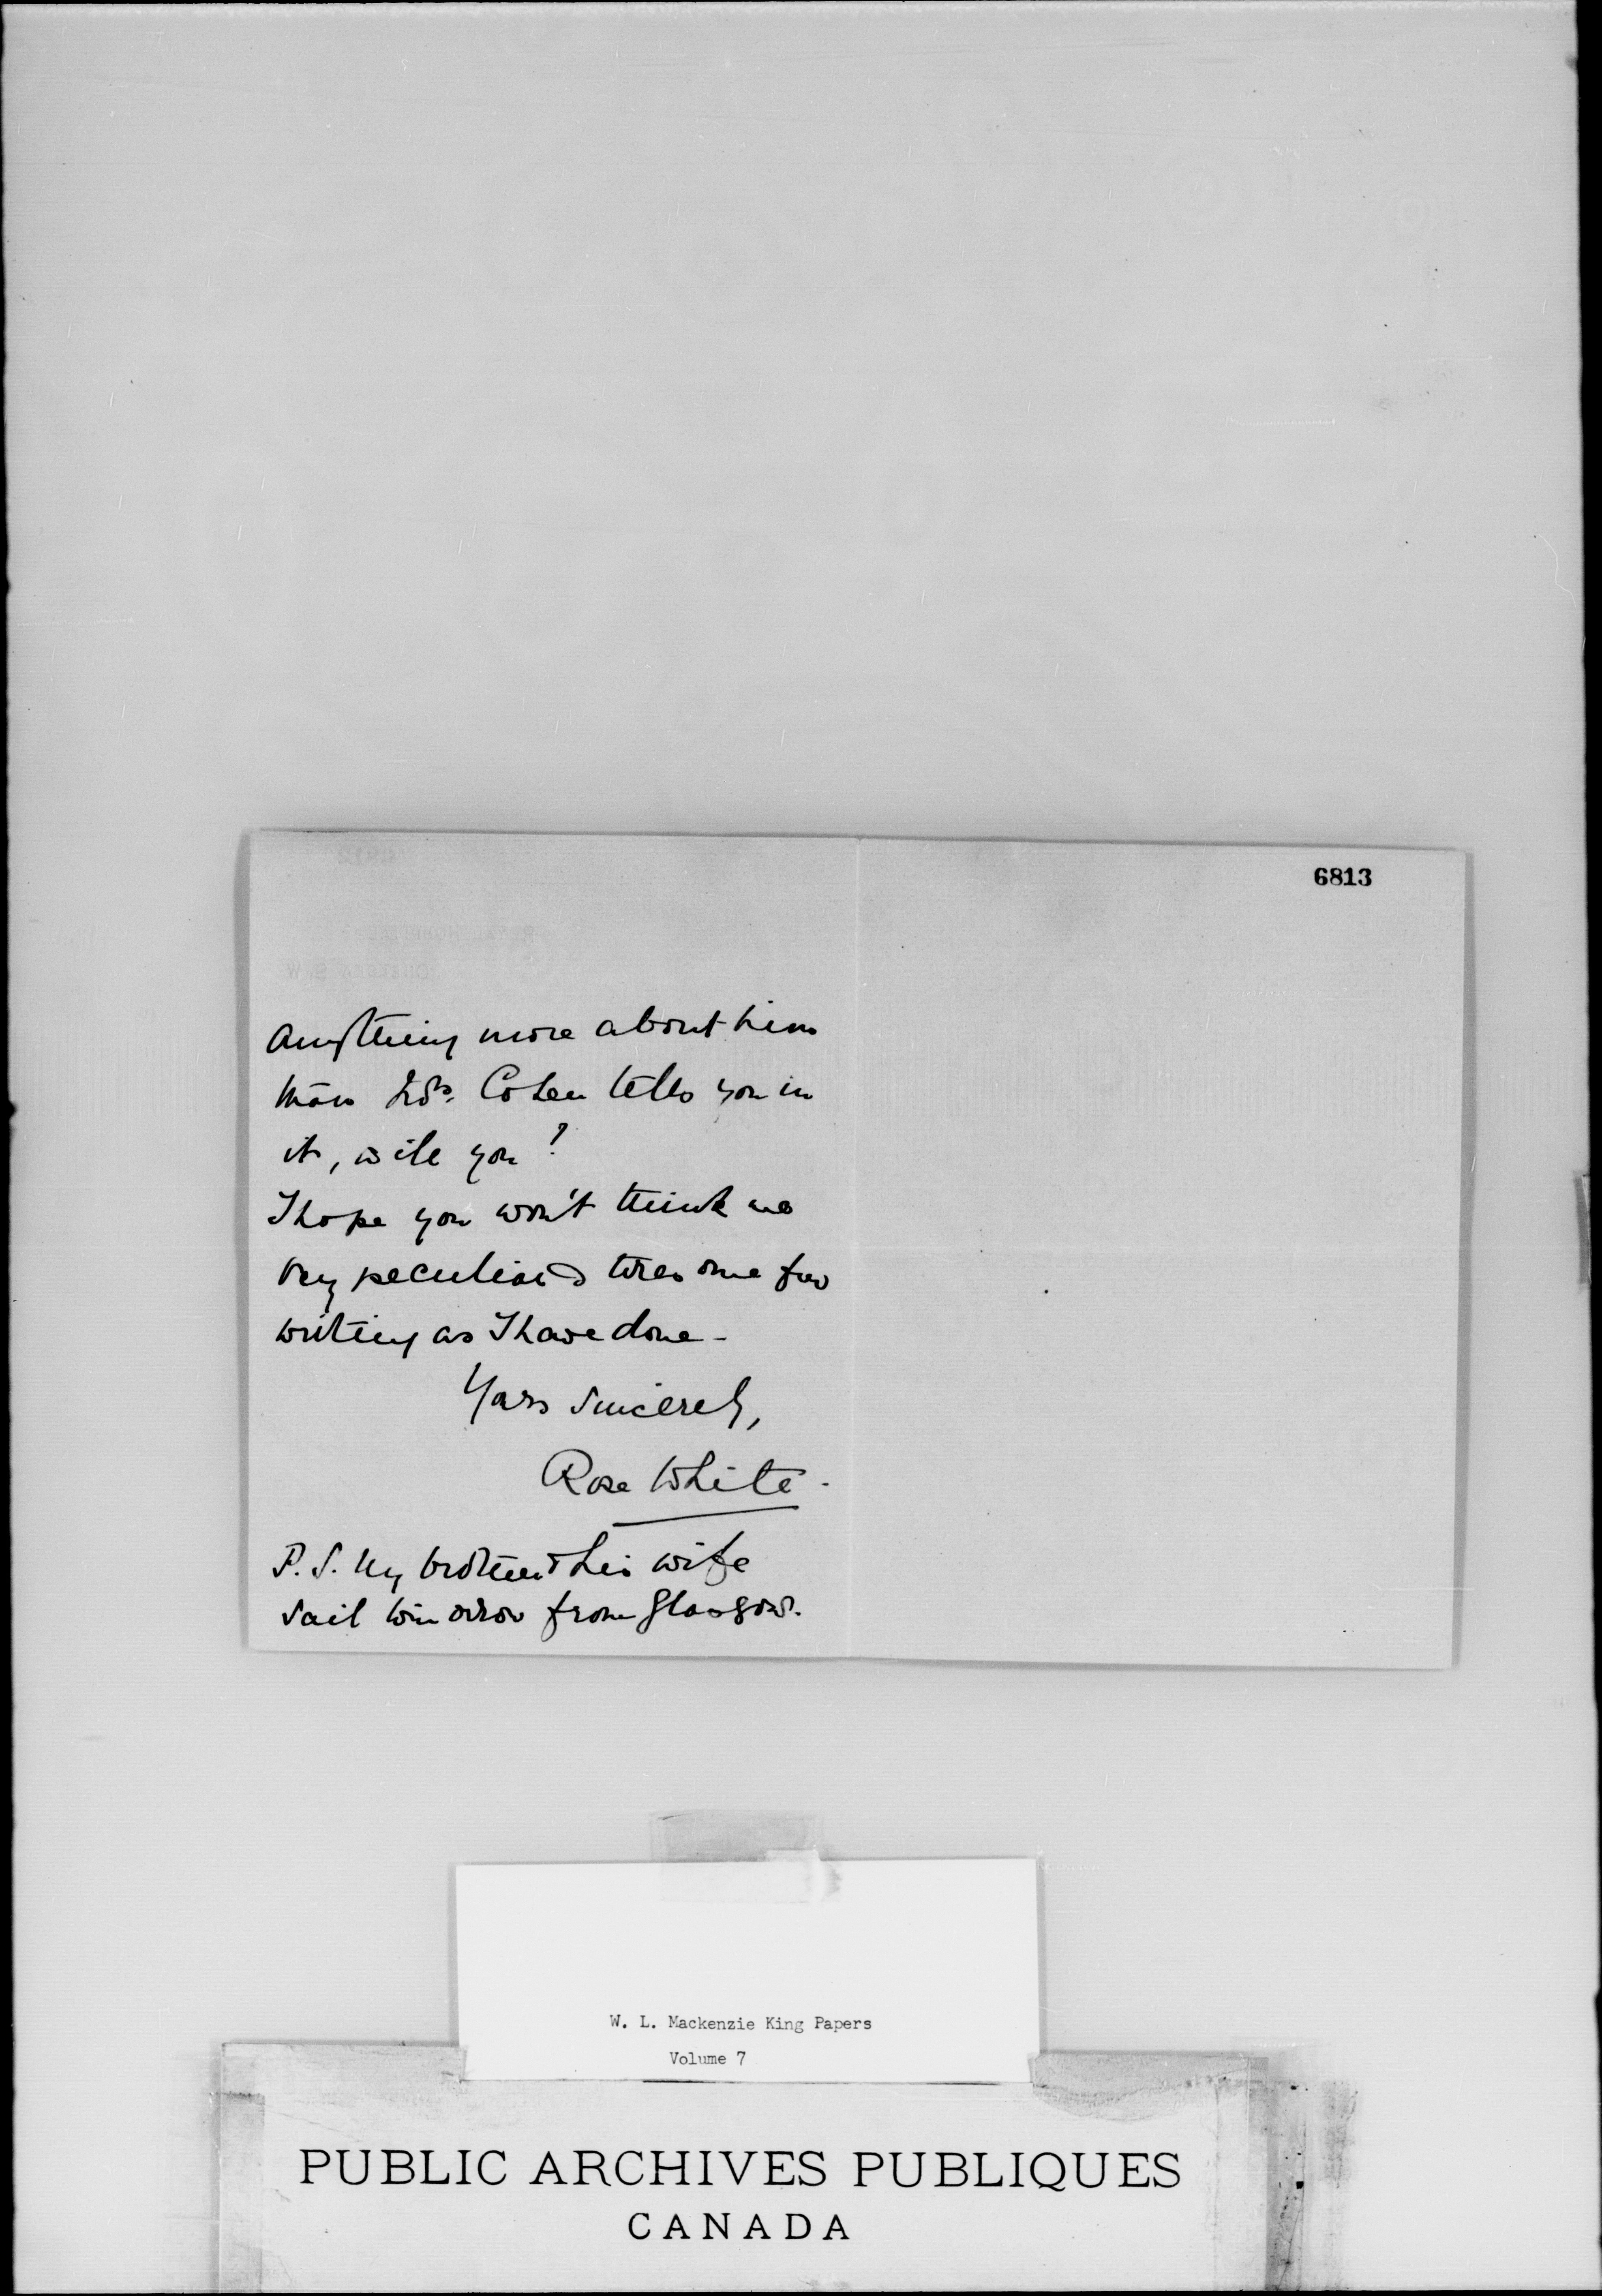 6813
anything more about him
than Mrs. Cohen tells you in
it, will you?
I hope you won't think me
very peculiar & tiresome for
writing as I have done -
Yours sincerely,
Rose White.
P.S. My brother & his wife
sail tomorrow from Glasgow.
W. L. Mackenzie King Papers
Volume 7
PUBLIC ARCHIVES PUBLIQUES
CANADA